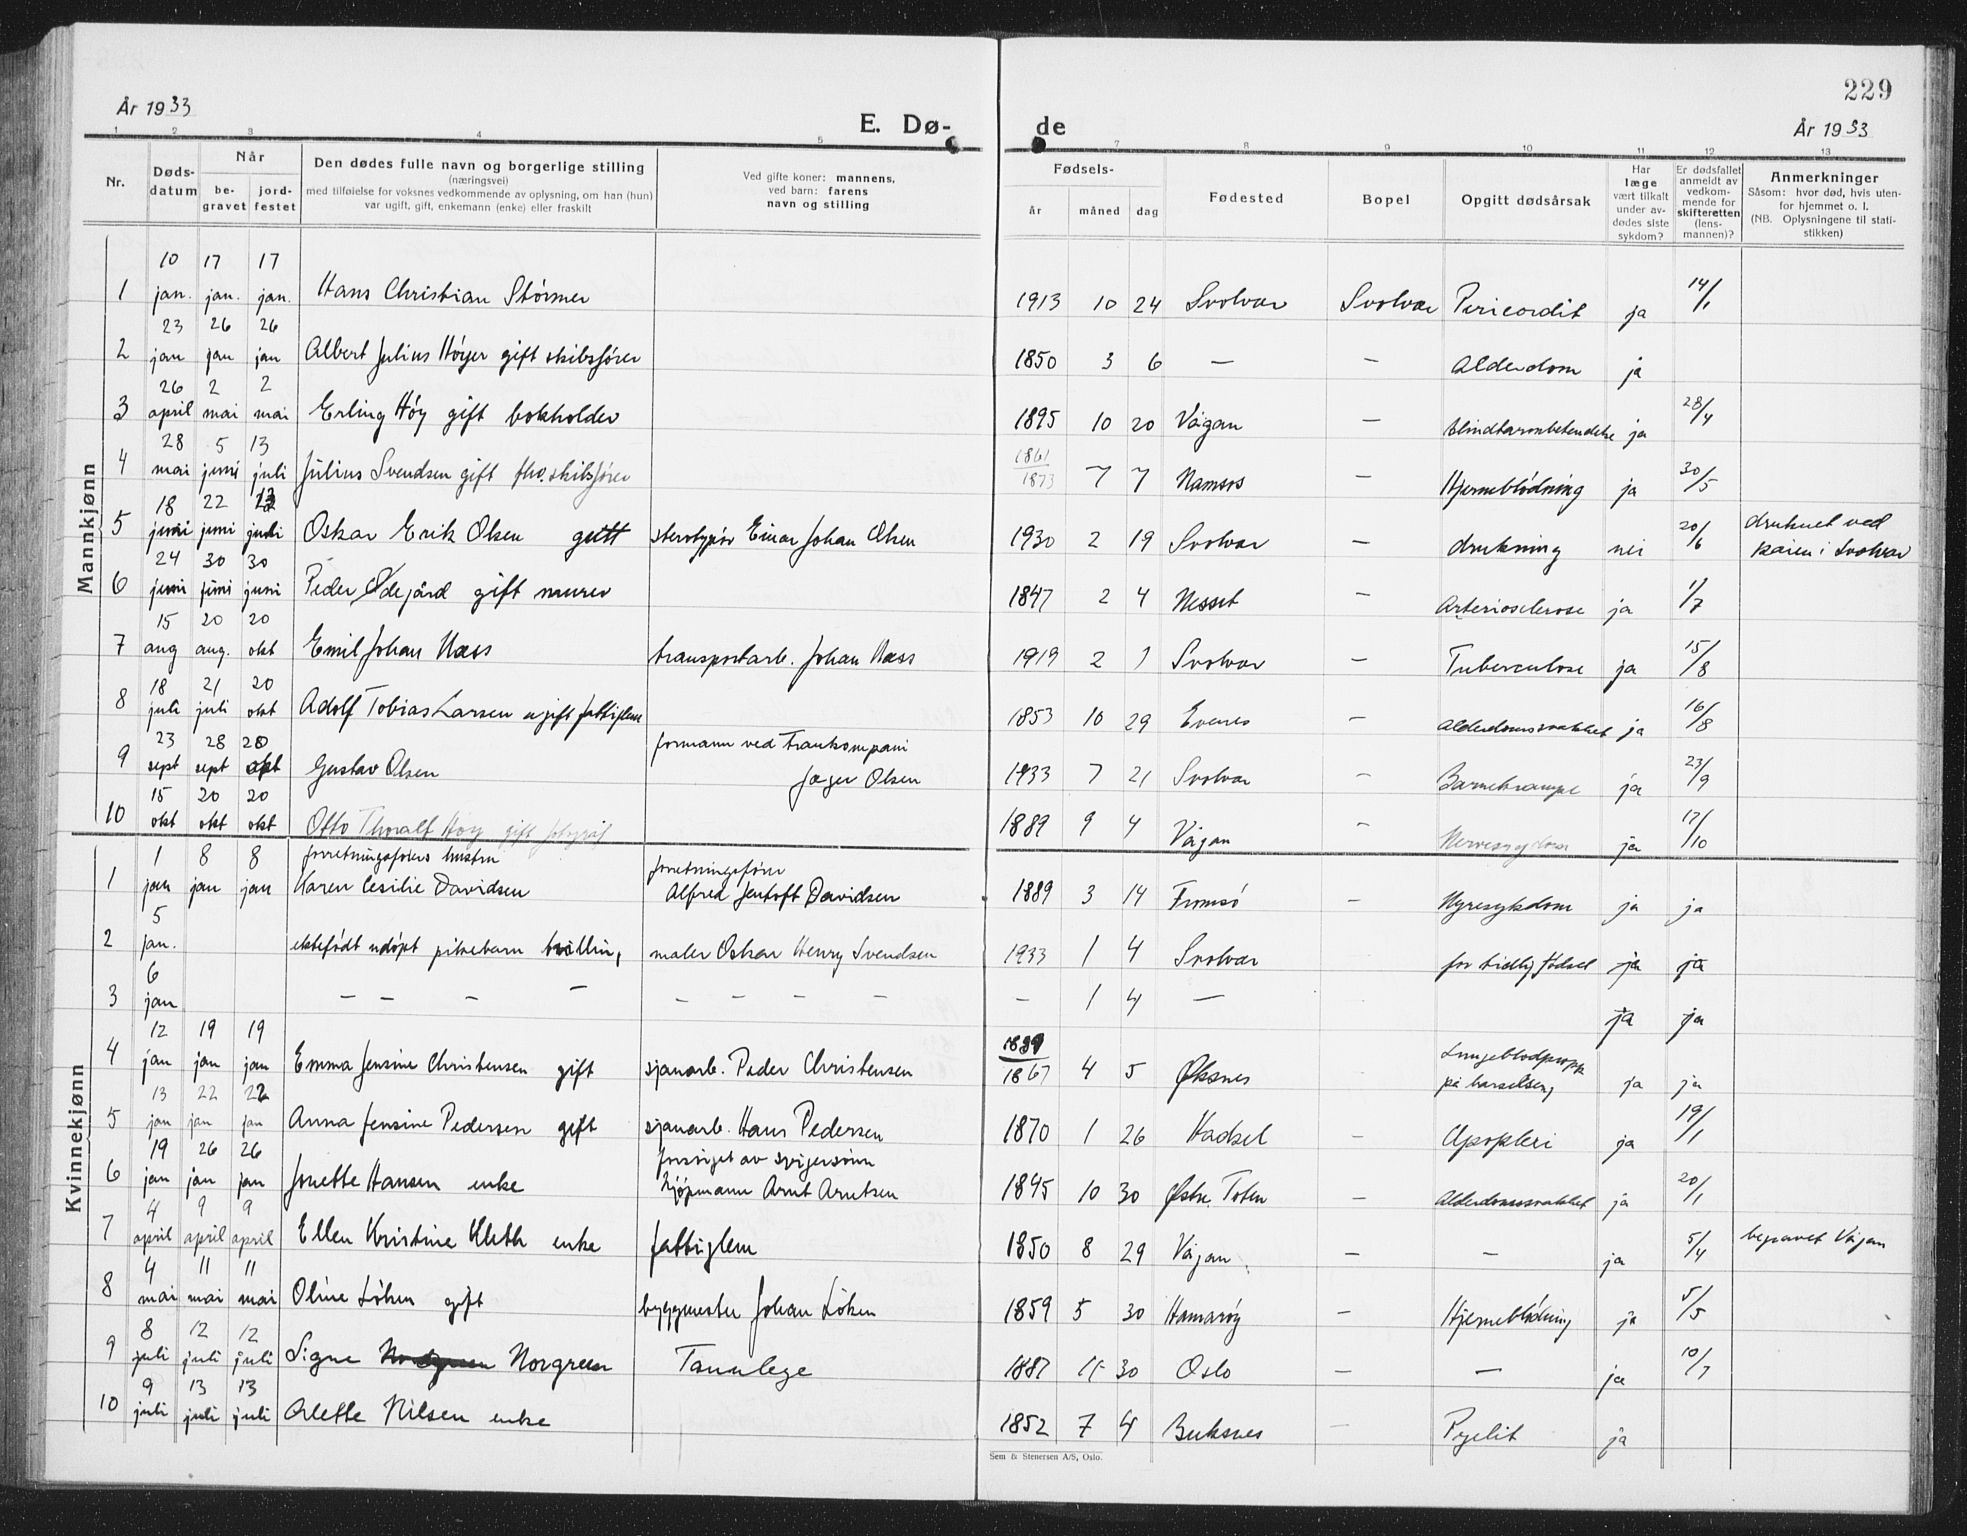 229
År 1933
E. Dø-
de
År 1933
1 2 3 4 5 7 8 9 10 11 12 13
Nr.
Døds-
datum
Når
be-
gravet
jord-
festet
Den dødes fulle navn og borgerlige stilling
(næringsvei)
med tilføielse for voksnes vedkommende av oplysning, om han (hun)
var ugift, gift, enkemann (enke) eller fraskilt
Ved gifte koner: mannens,
ved barn: farens
navn og stilling
Fødsels-
år måned dag
Fødested
Bopel
Opgitt dødsårsak
Har
læge
vært tilkalt
under av-
dødes siste
sykdom?
Er dødsfallet
anmeldt av
vedkom-
mende for
skifteretten
(lens-
mannen)?
Anmerkninger
Såsom: hvor død, hvis uten-
for hjemmet o. l.
(NB. Oplysningene til stati-
stikken)
Mannkjønn
10 17 17
1 jan. jan. jan. Hans Christian Störmer 1913 10 24 Svolvær Svolvær Pericordit ja 14/1
23 26 26
2 jan jan jan Albert Julius Höyer gift skibsfører 1850 3 6 — — Alderdom ja
26 2 2
3 april mai mai Erling Höy gift bokholder 1895 10 20 Vågan — blindtarmbetendelse ja 28/4
28 5 13
4 mai juni juli Julius Svendsen gift fhv. skibsfører 1861 1873 7 7 Namsos — Hjerneblödning ja 30/5
18 22 13
5 juni juni juli Oskar Erik Olsen gutt sterotypör Einar Johan Olsen 1930 2 19 Svolvær — drukning nei 20/6 druknet ved
kaien i Svolvær
24 30 30
6 juni juni juni Peder Ødegård gift murer 1847 2 4 Nesset — Arteriosclerose ja 1/7
15 20 20
7 aug aug. okt Emil Johan Næss transportarb. Johan Næss 1919 2 1 Svolvær — Tuberculose ja 15/8
18 21 20
8 juli juli okt Adolf Tobias Larsen ugift fattiglem 1853 10 29 Evenes — Alderdomssvakhet ja 16/8
23 28 20 formann ved Trankompani
9 sept sept okt Gustav Olsen Jæger Olsen 1933 7 21 Svolvær — Barnekrampe ja 23/9
15 20 20
10 okt okt okt Otto Thoralf Höy gift fotograf 1889 9 4 Vågan — Nervesygdom ja 17/10
Kvinnekjønn
1 8 8 forretningsførers hustru forretningsfører
1 jan jan jan Karen Cesilie Davidsen Alfred Jentoft Davidsen 1889 3 14 Tromsö — Nyresykdom ja ja
5
2 jan. ektefødt udöpt pikebarn tvilling, maler Oskar Henry Svendsen 1933 1 4 Svolvær for tidlig födsel ja ja
6
3 jan — — — — — — — — — 1 4 — ja ja
12 19 19
4 jan jan jan Emma Jensine Christensen gift sjauarb. Peder Christensen 1867 4 5 Øksnes Lungeblodpropp
på barselseng ja ja
13 22 22
5 jan jan jan Anna Jensine Pedersen gift sjauarb. Hans Pedersen 1870 1 26 Hadsel — Apoplexi ja 19/1
19 26 26 forsörget av svigersönn
6 jan jan jan Jonette Hansen enke kjøpmann Arnt Arntsen 1845 10 30 Østre Toten — Alderdomssvakhet ja 20/1
4 9 9
7 april april april Ellen Kristine Kleth enke fattiglem 1850 8 29 Vågan — — ja 5/4 begravet Vågan
4 11 11
8 mai mai mai Oline Löken gift byggmester Johan Löken 1859 5 30 Hamaröy — Hjerneblödning ja 5/5
8 12 12
9 juli juli juli Signe Norgreen Tannlege 1887 11 30 Oslo — — ja 10/7
9 13 13
10 juli juli juli Alette Nilsen enke 1852 7 4 Buksnes — Pyelit ja
Sem & Stenersen A/S, Oslo.